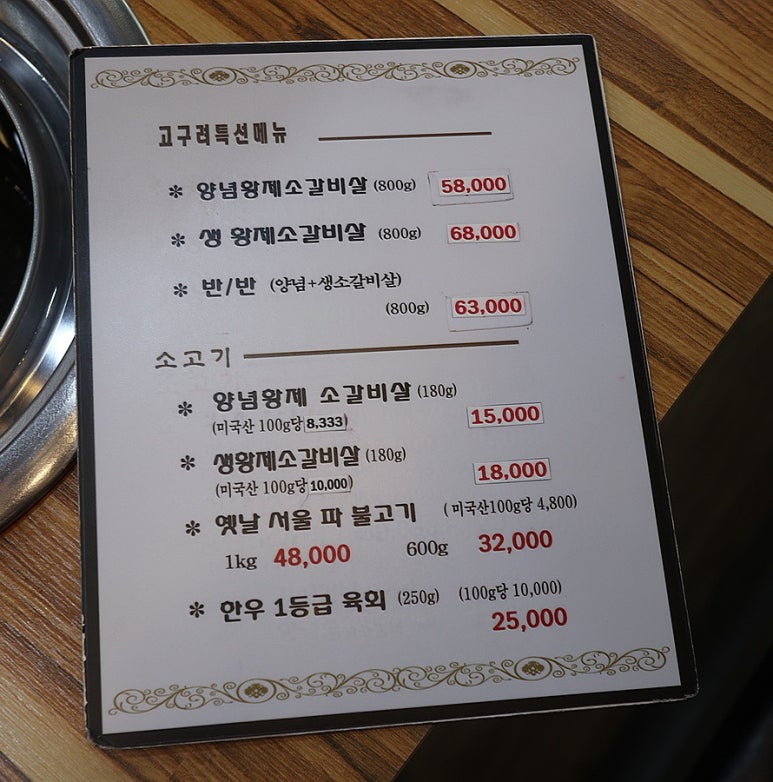 고구려특선메뉴
* 양념황제소갈비살 (800g) 58,000
* 생 황제소갈비살 (800g) 68,000
* 반/반 (양념+생소갈비살)
(800g) 63,000
소고기
* 양념황제 소갈비살 (180g)
(미국산 100g당 8,333) 15,000
* 생황제소갈비살 (180g)
(미국산 100g당 10,000) 18,000
* 옛날 서울 파 불고기 (미국산100g당 4,800)
1kg 48,000 600g 32,000
* 한우 1등급 육회 (250g) (100g당 10,000)
25,000